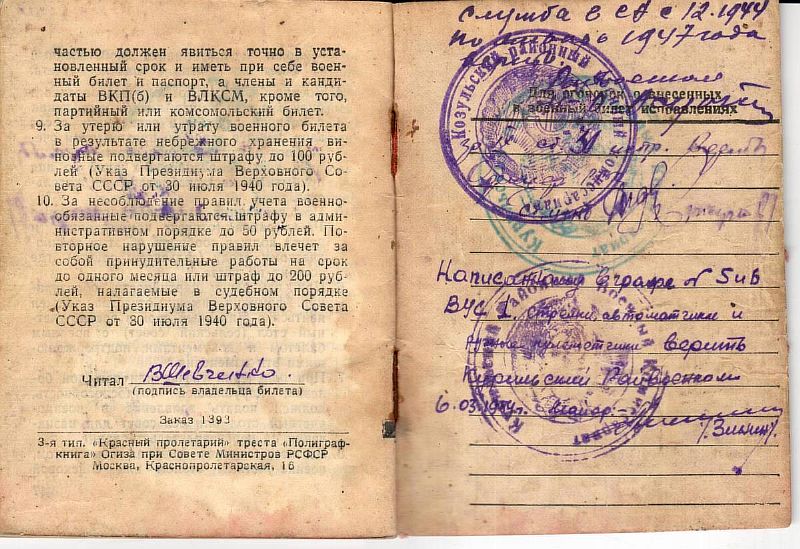 частью должен явиться точно в уста-
новленный срок и иметь при себе воен-
ный билет и паспорт, а члены и канди-
даты ВКП(б) и ВЛКСМ, кроме того,
партийный или комсомольский билет.
9. За утерю или утрату военного билета
в результате небрежного хранения ви-
новные подвергаются штрафу до 100 руб-
лей (Указ Президиума Верховного Со-
вета СССР от 30 июля 1940 года).
10. За несоблюдение правил учета военно-
обязанные подвергаются штрафу в адми-
нистративном порядке до 50 рублей. По-
вторное нарушение правил влечет за
собой принудительные работы на срок
до одного месяца или штраф до 200 руб-
лей, налагаемые в судебном порядке
(Указ Президиума Верховного Совета
СССР от 30 июля 1940 года).
Читал ВШевченко
(подпись владельца билета)
Заказ 1393
3-я тип. «Красный пролетарий» треста «Полиграф-
книга» Огиза при Совете Министров РСФСР
Москва, Краснопролетарская, 16
Служба в СА с 12.1944
по 1947 года
Для оговорок о внесенных
в военный билет исправлениях
Козульский районный
ст. верить
в графе
ВУС 1. стрелки, автоматчики и
верить
Курильский Райвоенком
6.03.1954г. Майор